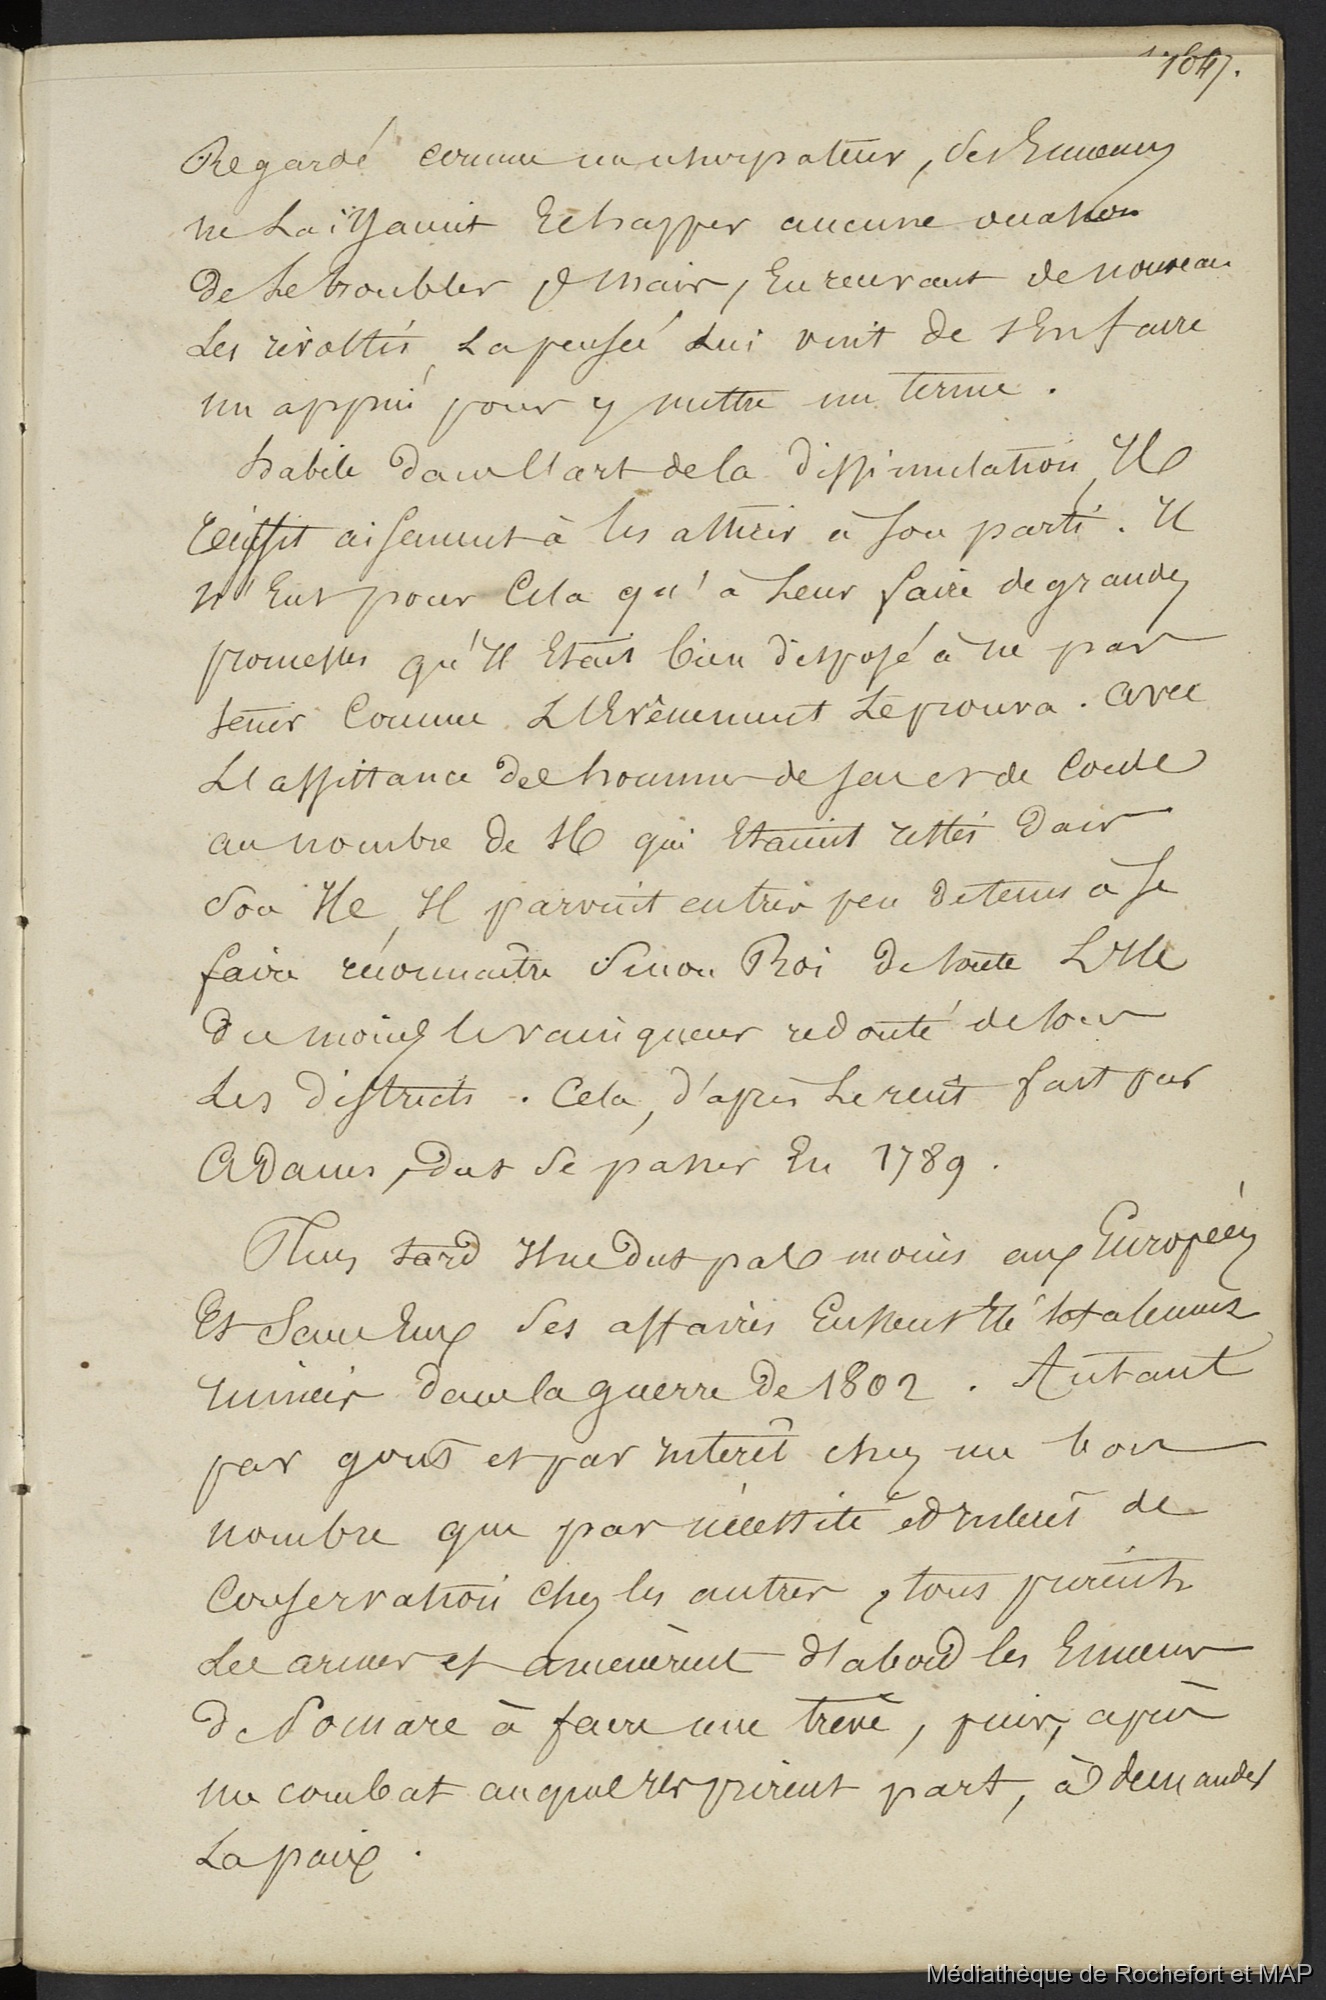 1647.
Regardé comme un usurpateur, ses Ennemis
ne Laissaient Echapper aucune occasion
de Le troubler & mais, En recevant de nouveau
Les révoltés La pensée Lui vint de s'En faire
un appui pour y mettre un terme.
habile dans l'art de la dissimulation, Il
réussit aisement à les attirer à son parti. Il
n'Eut pour Cela qu'à Leur faire de grandes
promesses qu'Il Etait bien disposé à ne pas
tenir Comme L'Evênement Le prouva. avec
L'assistance des hommes de sac et de Corde
au nombre de 16 qui Etaient restés dans
son Ile, Il parvint en très peu de tems à se
faire réconnaître sinon Roi de toute L'Ile
du moins le vainqueur redouté de tous
Les districts. Cela, d'après Le récit fait par
Adams, dut se passer En 1789.
Plus tard Il ne dut pas moins aux Européens
Et Sans Eux ses affaires Eussent Eté totalement
ruinées dans la guerre de 1802. Autant
par goût et par Intérêt chez un bon
nombre que par nécessité et Intérêt de
Conservation chez les autres, tous prirent
Les armes et amenèrent d'abord les Ennemis
de Pomare à faire une trève, puis, après
un combat auquel Ils prirent part, à demander
La paix.
Médiathèque de Rochefort et MAP